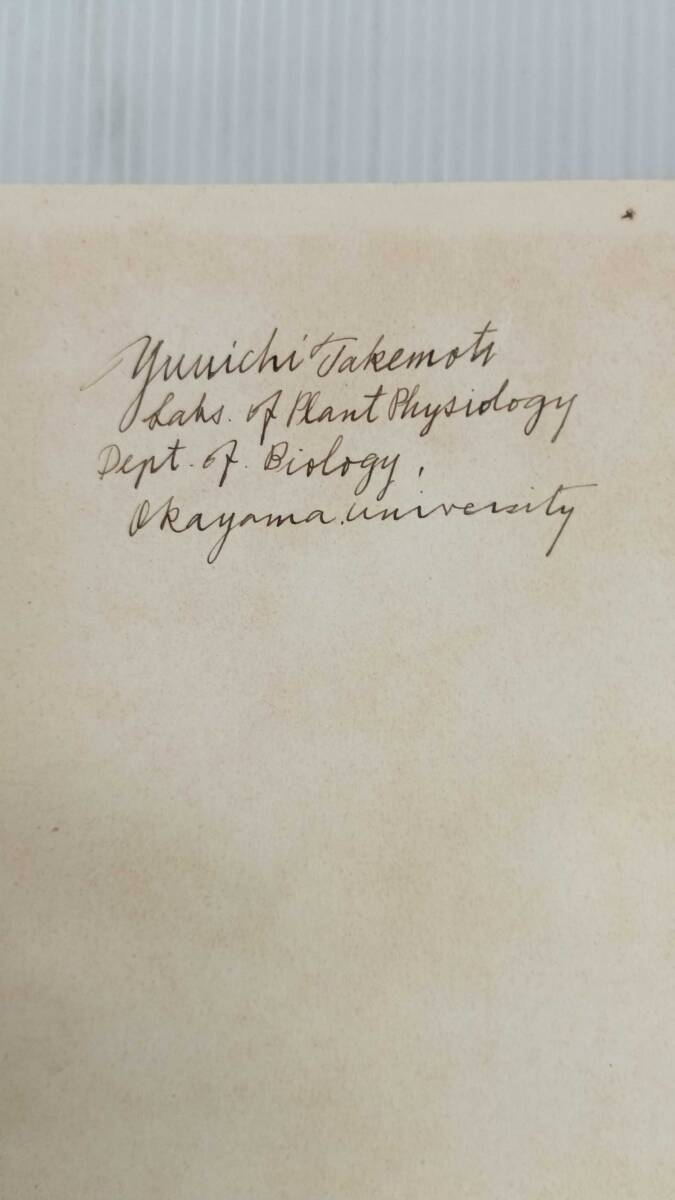 Takemoto
Labs. of Plant Physiology
Dept. of Biology,
Okayama University